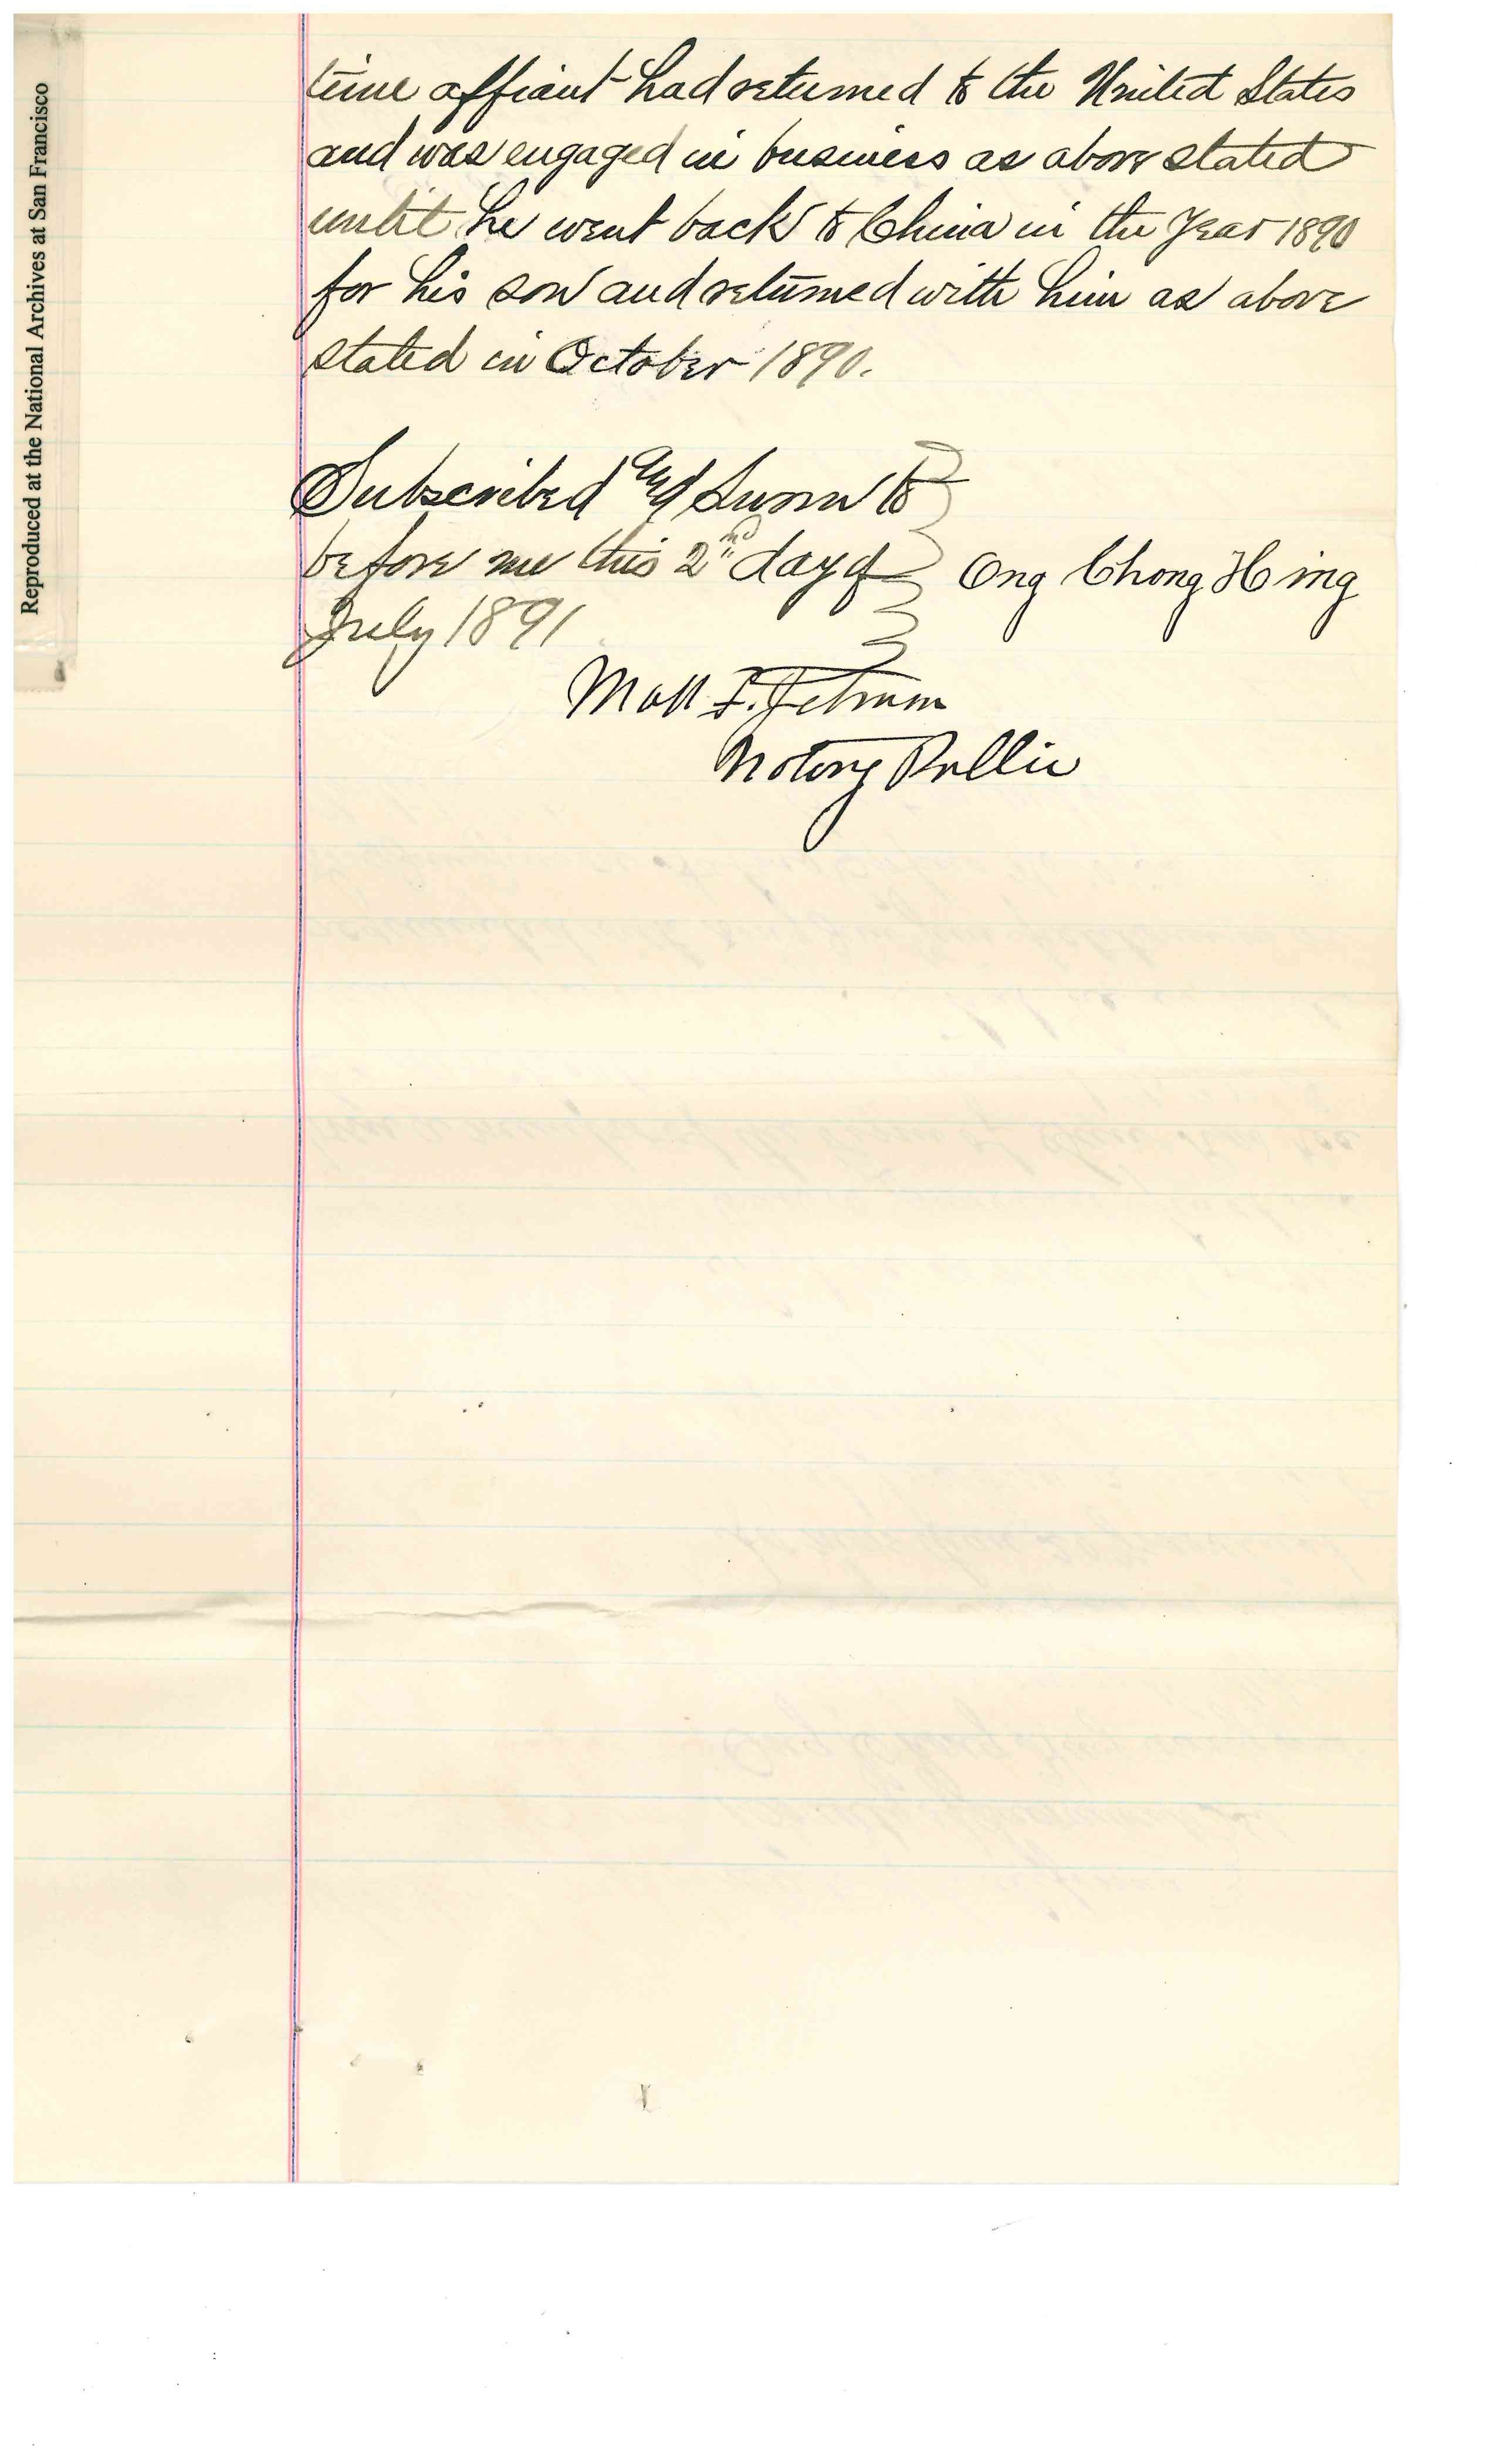 Reproduced at the National Archives at San Francisco
time affiant had returned to the United States
and was engaged in business as above stated
until he went back to China in the Year 1890
for his son and returned with him as above
stated in October 1890.
Subscribed and Sworn to
before me this 2nd day of
Ong Chong Hing
July 1891
F.
Notary Public